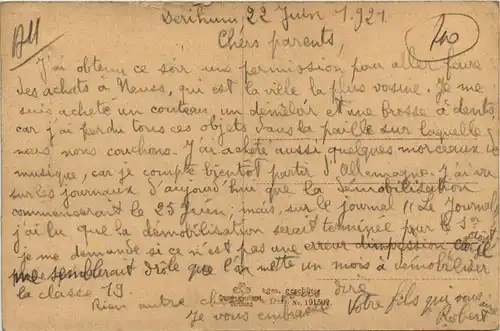 All
Derikum, 22 Juin 1921
Chers parents,
J'ai obtenu ce soir une permission pour aller faire
des achats à Neuss, qui est la ville la plus voisine. Je me
suis acheté un couteau, un démêloir et une brosse à dents,
car j'ai perdu tous ces objets dans la paille sur laquelle
nous nous couchons. J'ai acheté aussi quelques morceaux de
musique, car je compte bientôt partir d'Allemagne. J'ai vu
sur les journaux d'aujourd'hui que la démobilisation
commencerait le 25 Juin; mais, sur le journal "Le Journal
j'ai lu que la démobilisation serait terminée pour le 1er août
je me demande si ce n'est pas une erreur d'impression car il
me semblerait drôle que l'on mette un mois à démobiliser
la classe 19.
Rien autre chose à dire
Je vous embrasse
Votre fils qui vous
Robert
ges. geschützt
D.R. Nr. 191502